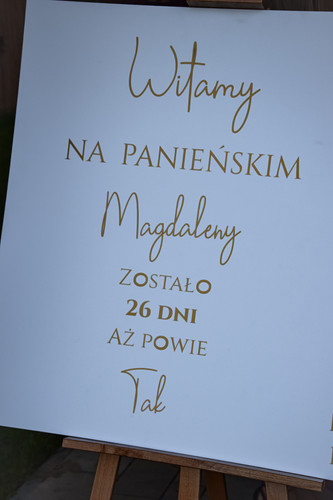 Witamy
NA PANIEŃSKIM
Magdaleny
ZOSTAŁO
26 DNI
AŻ POWIE
Tak